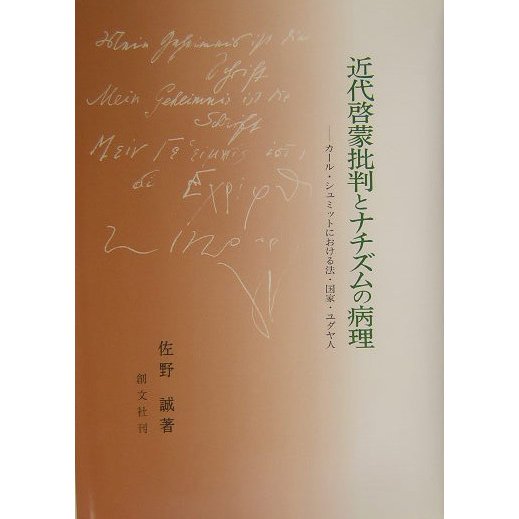 近代啓蒙批判とナチズムの病理
──カール・シュミットにおける法・国家・ユダヤ人
Mein Geheimnis ist die
Schrift
Mein Geheimnis ist die
Schrift
佐野 誠著
創文社刊